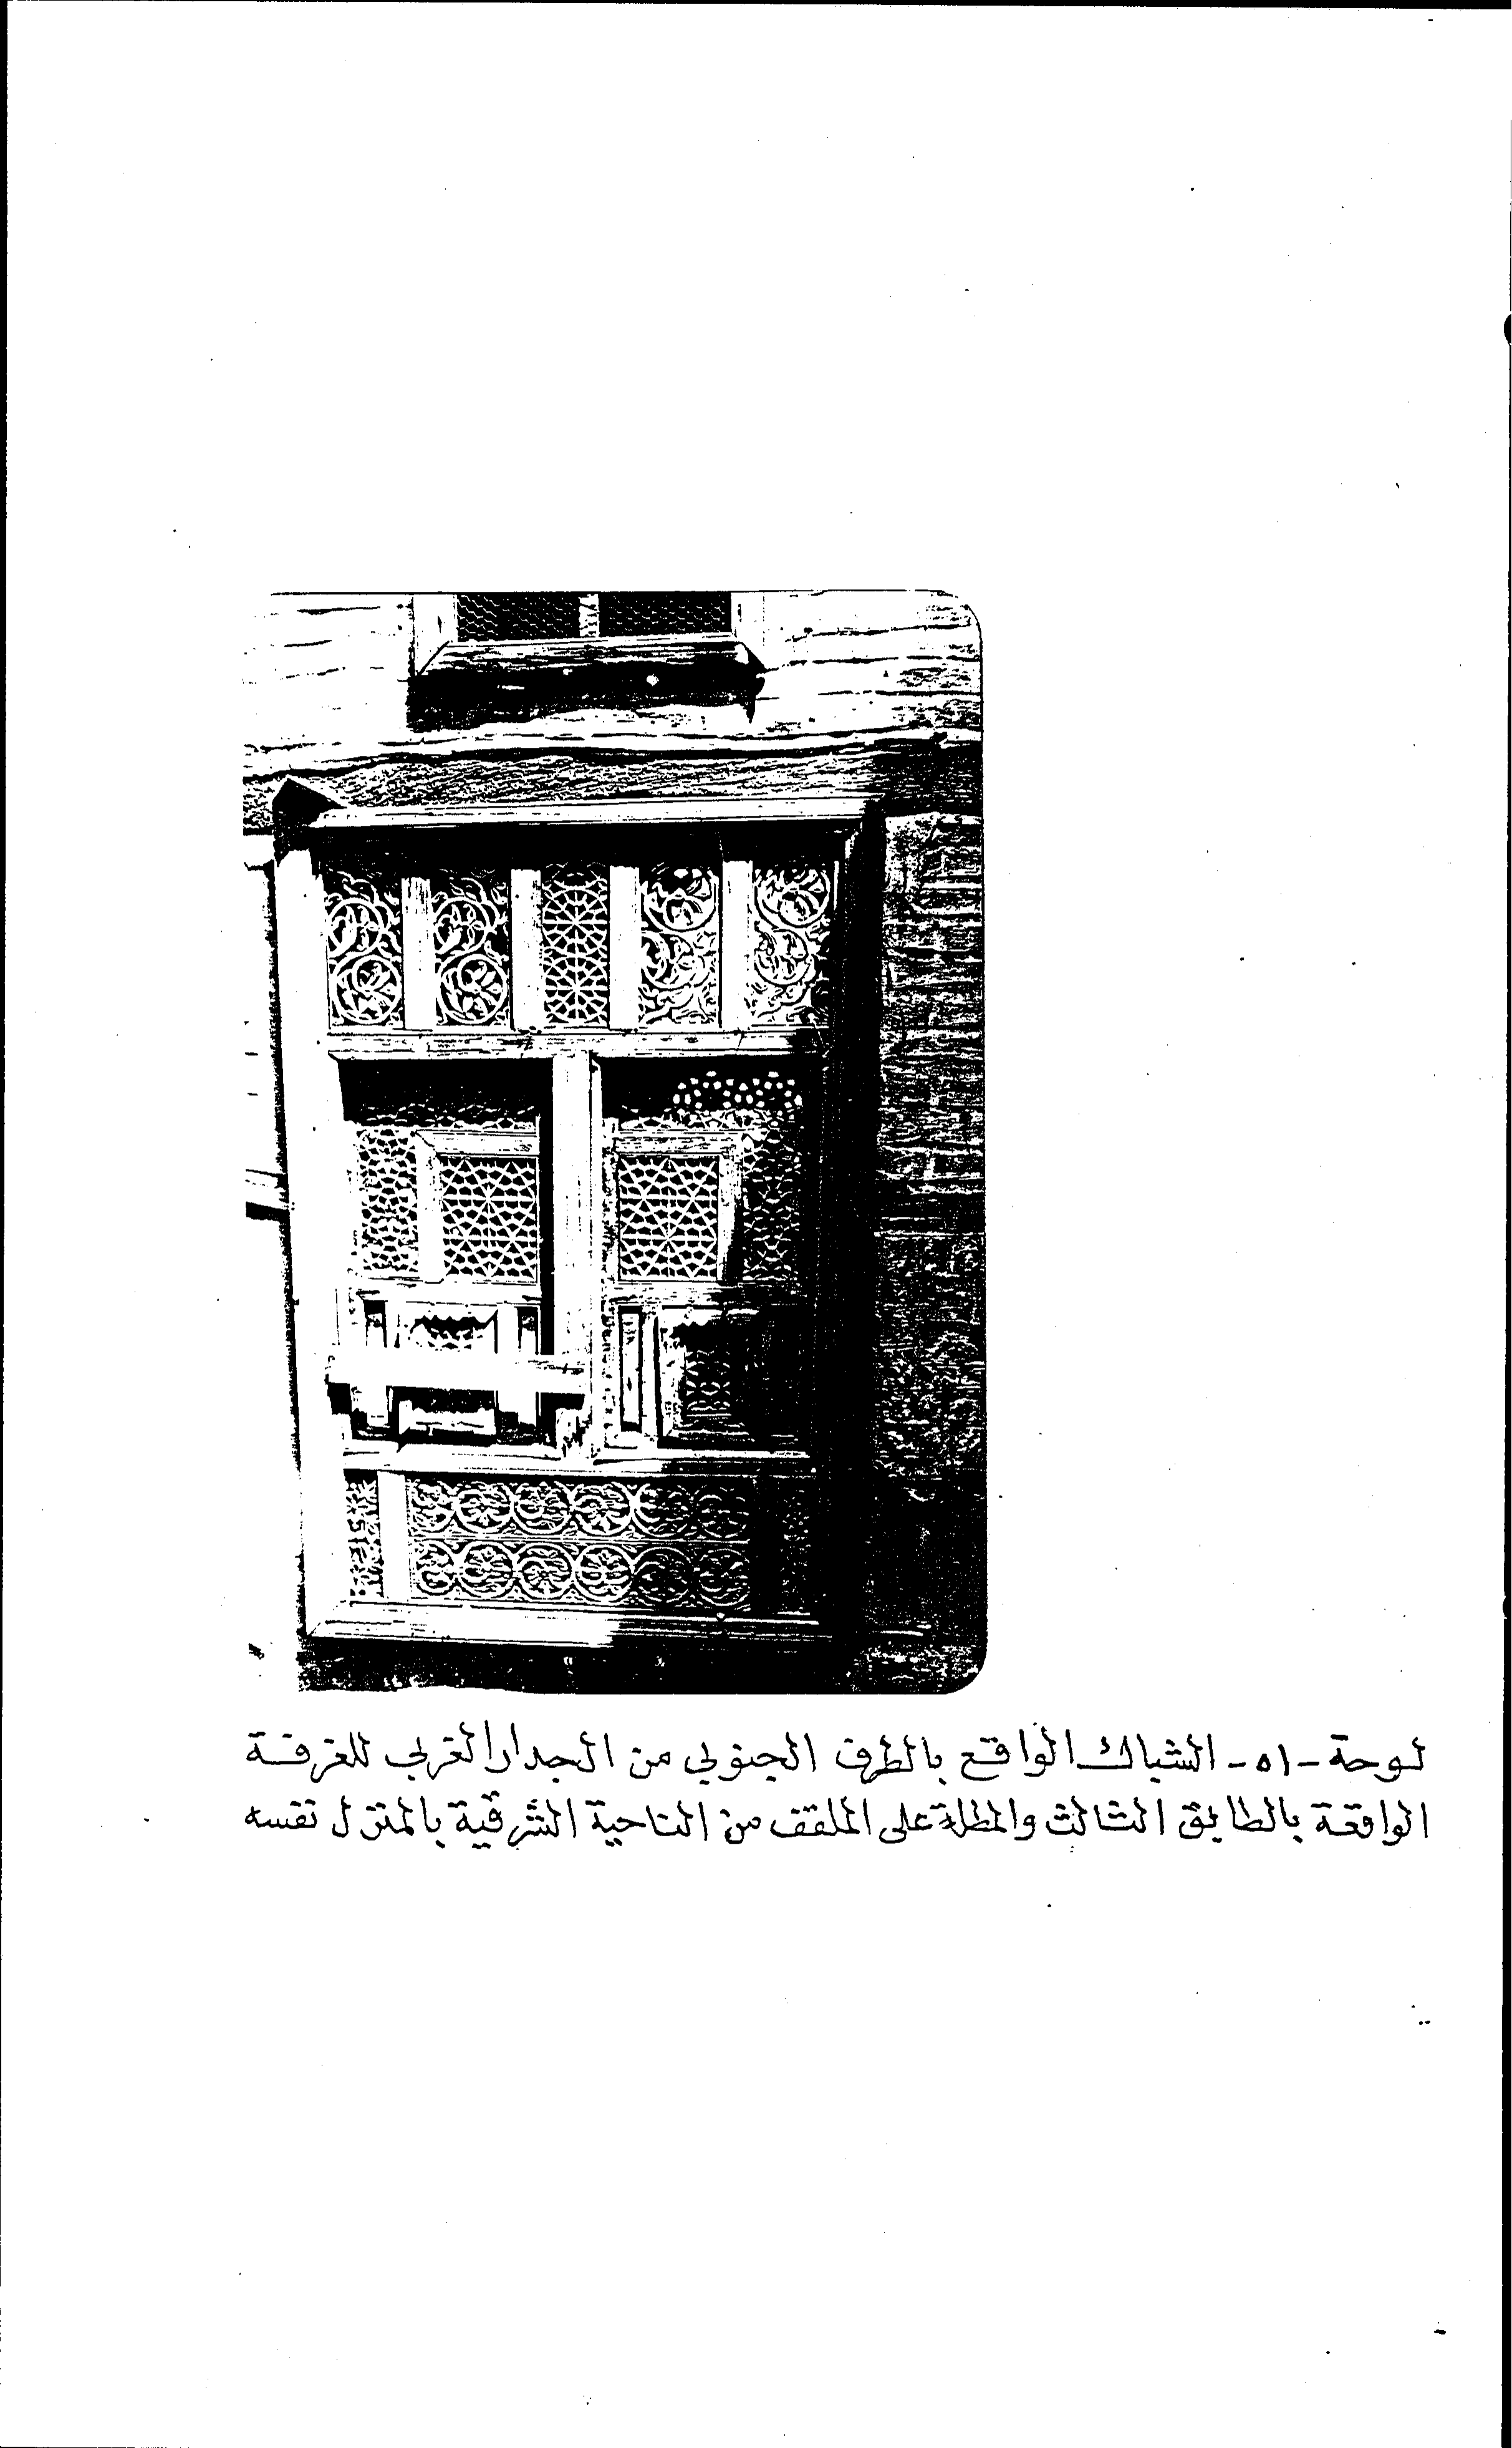 لوحة - ٥١ - الشباك الواقع بالطرف الجنوبي من الجدار الغربي للغرفة
الواقعة بالطابق الثالث والمطلة على الملقف من الناحية الشرقية بالمنزل نفسه